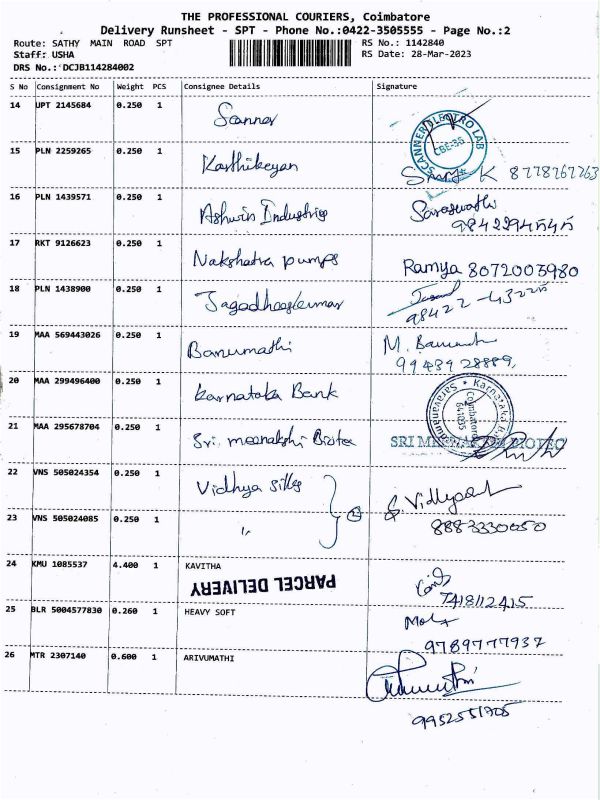 THE PROFESSIONAL COURIERS, Coimbatore
Delivery Runsheet - SPT - Phone No.:0422-3505555 - Page No.:2
Route: SATHY MAIN ROAD SPT RS No.: 1142840
Staff: USHA RS Date: 28-Mar-2023
DRS No.: DCJB114284002
S No Consignment No Weight PCS Consignee Details Signature
14 UPT 2145684 0.250 1 Scanner
SCANNER ELECTRO LAB
CBE-35
15 PLN 2259265 0.250 1 Karthikeyan K 8778767763
16 PLN 1439571 0.250 1 Ashwin Industries Saraswathi
9842294545
17 RKT 9126623 0.250 1 Nakshatra pumps Ramya 8072003980
18 PLN 1438900 0.250 1
98422-43225
19 MAA 569443026 0.250 1 Banumathi M.
9948928889
20 MAA 299496400 0.250 1 Karnataka Bank
Karnataka
Coimbatore
641035
21 MAA 295678704 0.250 1 Sri. meenakshi Biotec SRI BIOTEC
22 VNS 505024354 0.250 1 Vidhya silks
23 VNS 505024085 0.250 1 " 2
8883330050
24 KMU 1085537 4.400 1 KAVITHA
PARCEL DELIVERY
7418112415
25 BLR 5004577830 0.260 1 HEAVY SOFT
9789777937
26 MTR 2307140 0.600 1 ARIVUMATHI
9952551705